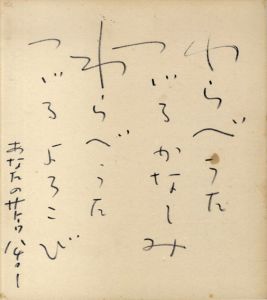 わらべうた
つづるかなしみ
わらべうた
つづるよろこび
あなたのサトウハチロー